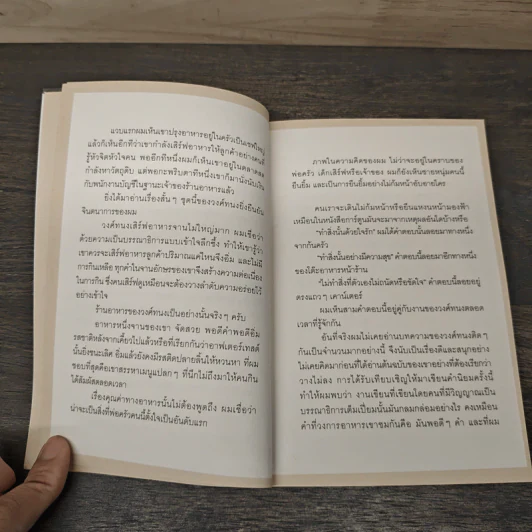 แวบแรกผมเห็นเขาปรุงอาหารอยู่ในครัวเป็นเชฟใหญ่
แล้วก็เห็นอีกทีว่าเขากำลังเสิร์ฟอาหารให้ลูกค้าอย่างคนที่
รู้หัวจิตหัวใจคน พออีกทีหนึ่งผมก็เห็นเขาอยู่ในตลาดสด
กำหาวัตถุดิบ แต่พอกะพริบตาทีหนึ่งเขาก็มานั่งนับเงิน
กับพนักงานบัญชีในฐานะเจ้าของร้านอาหารแล้ว
ยิ่งได้มาอ่านเรื่องสั้นๆ ชุดนี้ของวงศ์ทนงยิ่งยืนยัน
จินตนาการของผม
วงศ์ทนงเสิร์ฟอาหารจานไม่ใหญ่มาก ผมเชื่อว่า
ด้วยความเป็นบรรณาธิการแบบเข้าใจลึกซึ้ง ทำให้เขารู้ว่า
เขาควรจะเสิร์ฟอาหารลูกค้าปริมาณแค่ไหนจึงอิ่ม และไม่มี
การกินเหลือ ทุกคำในจานอักษรของเขาจึงสร้างความต่อเนื่อง
ในการกิน ซึ่งคนเสิร์ฟดูเหมือนจะต้องวางลำดับความอร่อยไว้
อย่างเข้าใจ
ร้านอาหารของวงศ์ทนงเป็นอย่างนั้นจริงๆ ครับ
อาหารหนึ่งจานของเขา จัดสวย พอดีคำพอดีอิ่ม
รสชาติหลังจากเคี้ยวไปแล้วหรือที่เรียกกันว่าอาฟเตอร์เทสต์
นั้นยิ่งชนะเลิศ อิ่มแล้วยังคงมีรสติดปลายลิ้นให้หวนหา ที่ผม
ชอบที่สุดคือเขาสรรหาเมนูแปลกๆ ที่นึกไม่ถึงมาให้คนกิน
ได้สัมผัสตลอดเวลา
เรื่องคุณค่าทางอาหารนั้นไม่ต้องพูดถึง ผมเชื่อว่า
น่าจะเป็นสิ่งที่พ่อครัวคนนี้ตั้งใจเป็นอันดับแรก
ภาพในความคิดของผม ไม่ว่าจะอยู่ในคราบของ
พ่อครัว เด็กเสิร์ฟหรือเจ้าของ ผมก็ยังเห็นชายหนุ่มคนนี้
ยืนยิ้ม และเป็นการยืนยิ้มอย่างไม่ก้มหน้าอับอายใคร
คนเราจะเดินไม่ก้มหน้าหรือยืนแหงนหน้ามองฟ้า
เหมือนในหนังสือการ์ตูนมันจะมาจากเหตุผลอันใดบ้างหรือ
"ทำสิ่งนั้นด้วยใจรัก" ผมได้คำตอบนี้ลอยมาทางหนึ่ง
จากก้นครัว
"ทำสิ่งนั้นอย่างมีความสุข" คำตอบนี้ลอยมาอีกทางหนึ่ง
ของโต๊ะอาหารหน้าร้าน
"ไม่ทำสิ่งที่ตัวเองไม่ถนัดหรือขัดใจ" คำตอบนี้ลอยอยู่
ตรงแถวๆ เคาน์เตอร์
ผมเห็นสามคำตอบนี้อยู่คู่กับงานของวงศ์ทนงตลอด
เวลาที่รู้จักกัน
อันที่จริงผมไม่เคยอ่านบทความของวงศ์ทนงติดๆ
กันเป็นจำนวนมากอย่างนี้ จึงนับเป็นเรื่องดีและสนุกอย่าง
ไม่เคยคิดมาก่อนที่ได้อ่านต้นฉบับของเขาอย่างที่ต้องเรียกว่า
วางไม่ลง การได้รับเทียบเชิญให้มาเขียนคำนิยมครั้งนี้
ทำให้ผมพบว่า งานเขียนที่เขียนโดยคนที่มีวิญญาณเป็น
บรรณาธิการเต็มเปี่ยมนั้นมันกลมกล่อมอย่างไร คงเหมือน
คำที่วงการอาหารเขาชมกันคือ มันพอดีๆ คำ และที่ผม